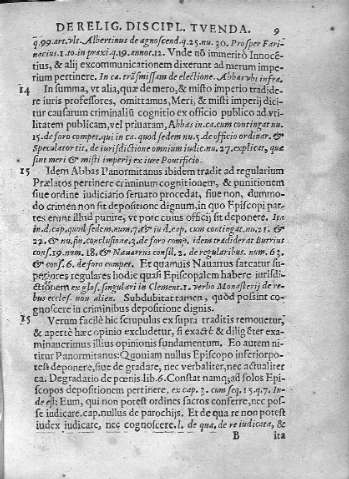 DE RELIG. DISCIPL. TVENDA. 9
q.99.art.vlt. Albertinus de agnoscend.q.25.nu.30. Prosper Fari-
nacius.1.to.in praxi q.19.annot.12. Vnde nõ immeritò Innocē-
tius, & alij excommunicationem dixerunt ad merum impe-
rium pertinere. In ca. de electione. Abbas vbi infra.
14 In summa, vt alia, quæ de mero, & misto imperio tradide-
re iuris professores, omittamus, Meri, & misti imperij dici-
tur causarum criminaliũ cognitio ex officio publico ad vti-
litatem publicam, vel priuatam, Abbas in.ca.cum contingat nu.
15. de foro compet. qui in ca. quod sedem nu.5.de officio ordinar. &
Speculator tit. de iurisdictione omnium iudic. nu.27. explicat, quæ
sint meri & misti imperij ex iure Pontificio.
15 Idem Abbas Panormitanus ibidem tradit ad regularium
Prælatos pertinere criminum cognitionem, & punitionem
siue ordine iudiciario seruato procedat, siue non, dummo-
do crimen non sit depositione dignum, in quo Episcopi par-
tes enim illud punire, vt pote cuius officij sit deponere. Ita
in d.cap.quod sedem.num.7.& in d.cap. cum contingat nu.21. &
22. & nu.fin.conclusione.3.de foro comp. idem tradiderat Butrius
conf.19.num.18.& Nauarrus consil.2. de regularibus. num. 63.
& cons.6. de foro compet. Et quamuis Nauarrus fateatur su-
periores regulares hodie quasi Episcopalem habere iurisdi-
ctionem ex glos. singulari in Clement.1. verbo Monasterij de re-
bus eccles. non alien. Subdubitat tamen, quòd possint co-
gnoscere in criminibus depositione dignis.
15 Verum facilè hic scrupulus ex supra traditis remouetur,
& apertè hæc opinio excludetur, si exactè & diligēter exa-
minauerimus illius opinionis fundamentum. Eo autem ni-
titur Panormitanus: Quoniam nullus Episcopo inferior po-
test deponere, siue de gradare, nec verbaliter, nec actualiter
ca. Degradatio de pœnis lib.6. Constat namq; ad solos Epi-
scopos depositionem pertinere. ex cap.2. cum seq.15.q.7. In-
de est: Eum, qui non potest ordines sacros conferre, nec pos-
se iudicare. cap.nullus de parochijs. Et de qua re non potest
iudex iudicare, nec cognoscere. l. de qua, de re iudicata, &
B ita